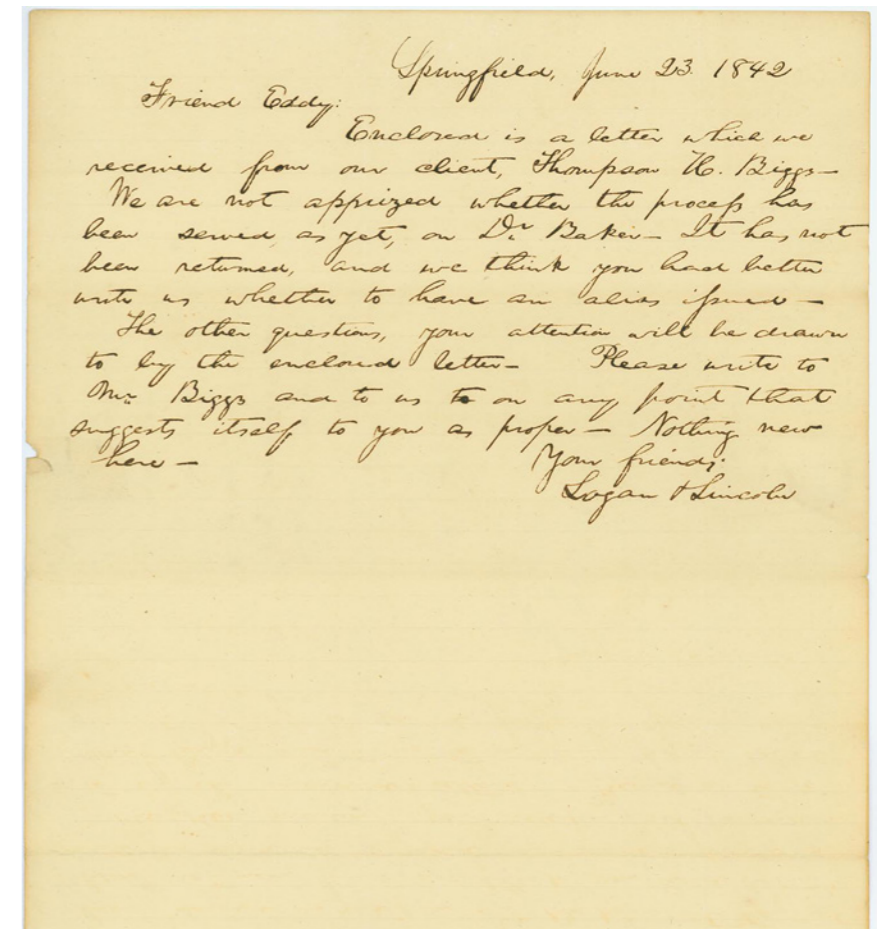 Springfield, June 23. 1842
Friend Eddy:
Enclosed is a letter which we
received from our client, Thompson H. Biggs—
We are not apprized whether the process has
been served, as yet, on Dr. Baker— It has not
been returned, and we think you had better
write us whether to have an alias issued—
The other questions, your attention will be drawn
to by the enclosed letter— Please write to
Mr. Biggs and to us to on any point that
suggests itself, to you as proper— Nothing new
here—
Your friends,
Logan & Lincoln